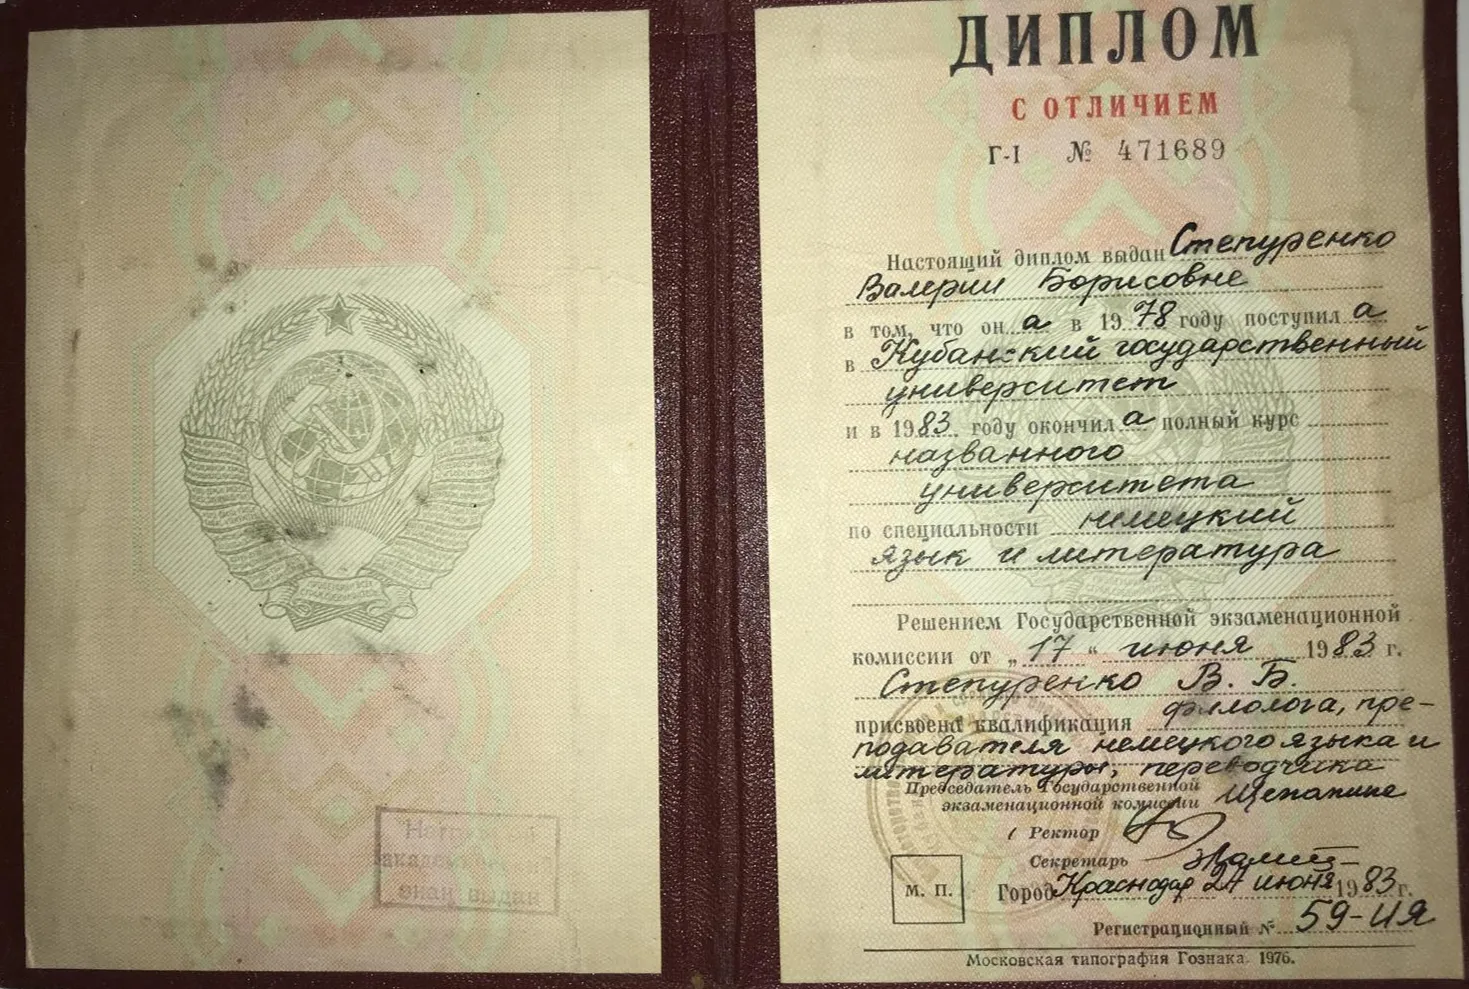 Нагрудный
академический
знак выдан
ДИПЛОМ
С ОТЛИЧИЕМ
Г-I № 471689
Настоящий диплом выдан Степуренко
Валерии Борисовне
в том, что он а в 1978 году поступил а
в Кубанский государственный
университет
и в 1983 году окончил а полный курс
названного
университета
по специальности немецкий
язык и литература
Решением Государственной экзаменационной
комиссии от „17“ июня 1983 г.
Степуренко В. Б.
присвоена квалификация филолога, пре-
подавателя немецкого языка и
литературы, переводчика
Председатель Государственной
экзаменационной комиссии
Ректор
Секретарь
М. П.
Город Краснодар 24 июня 1983 г.
Регистрационный № 59-ИЯ
Московская типография Гознака. 1976.